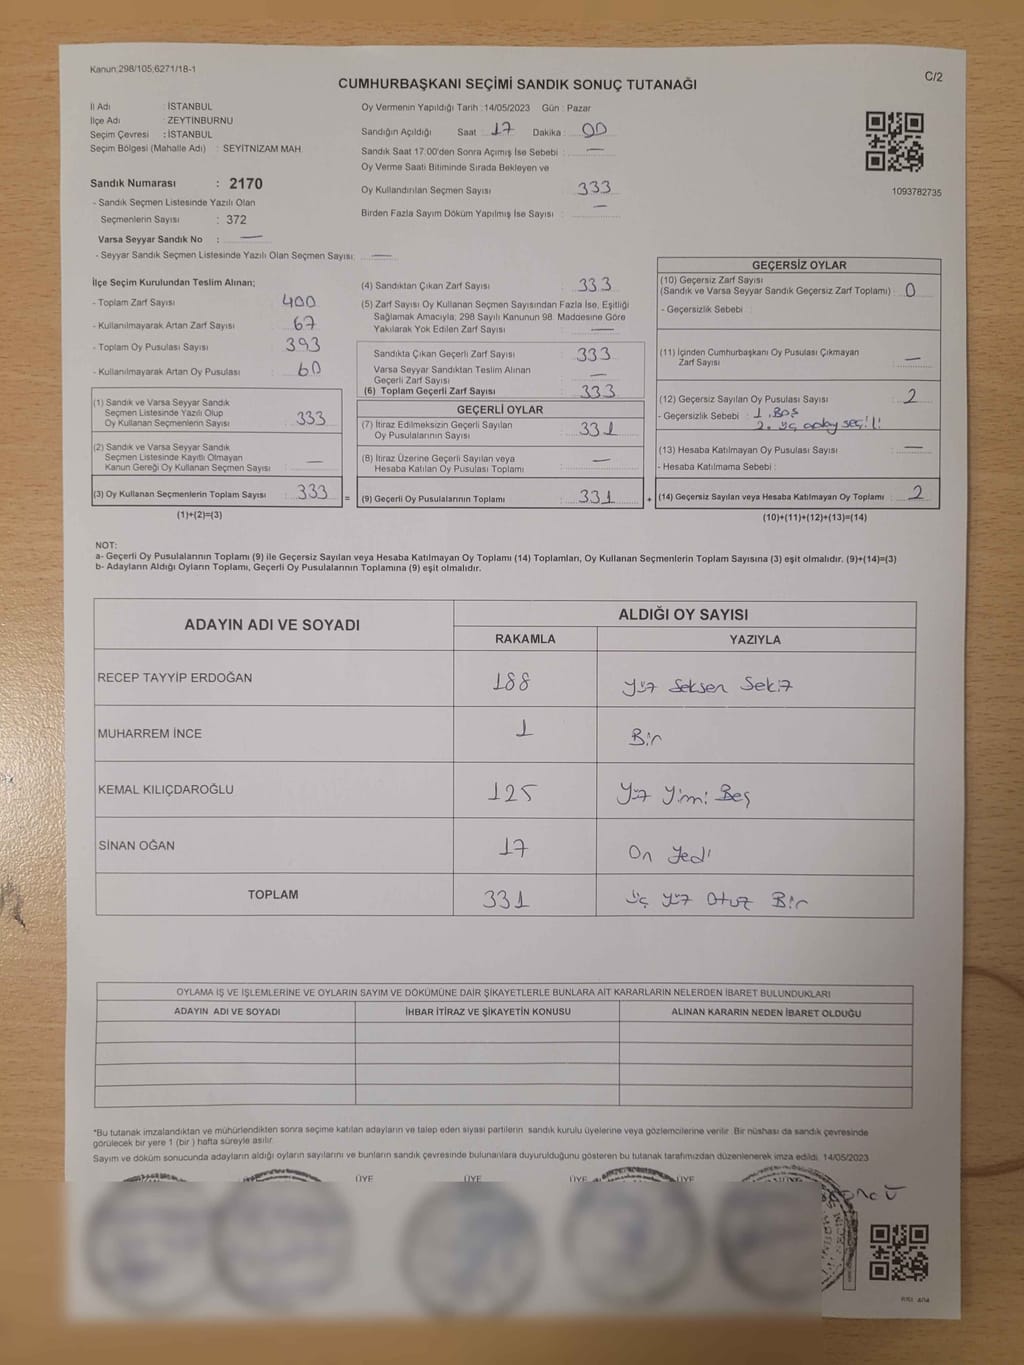 Kanun:298/105;6271/18-1
C/2
CUMHURBAŞKANI SEÇİMİ SANDIK SONUÇ TUTANAĞI
İl Adı : İSTANBUL
İlçe Adı : ZEYTİNBURNU
Seçim Çevresi : İSTANBUL
Seçim Bölgesi (Mahalle Adı) : SEYİTNİZAM MAH.
Sandık Numarası : 2170
- Sandık Seçmen Listesinde Yazılı Olan
Seçmenlerin Sayısı : 372
Varsa Seyyar Sandık No : —
- Seyyar Sandık Seçmen Listesinde Yazılı Olan Seçmen Sayısı: —
Oy Vermenin Yapıldığı Tarih : 14/05/2023 Gün : Pazar
Sandığın Açıldığı Saat : 17 Dakika : 00
Sandık Saat 17:00'den Sonra Açımış İse Sebebi : —
Oy Verme Saati Bitiminde Sırada Bekleyen ve
Oy Kullandırılan Seçmen Sayısı 333
Birden Fazla Sayım Döküm Yapılmış İse Sayısı : —
1093782735
İlçe Seçim Kurulundan Teslim Alınan;
- Toplam Zarf Sayısı 400
- Kullanılmayarak Artan Zarf Sayısı : 67
- Toplam Oy Pusulası Sayısı : 393
- Kullanılmayarak Artan Oy Pusulası : 60
(1) Sandık ve Varsa Seyyar Sandık
Seçmen Listesinde Yazılı Olup
Oy Kullanan Seçmenlerin Sayısı : 333
(2) Sandık ve Varsa Seyyar Sandık
Seçmen Listesinde Kayıtlı Olmayan
Kanun Gereği Oy Kullanan Seçmen Sayısı : —
(3) Oy Kullanan Seçmenlerin Toplam Sayısı : 333 =
(1)+(2)=(3)
(4) Sandıktan Çıkan Zarf Sayısı : 333
(5) Zarf Sayısı Oy Kullanan Seçmen Sayısından Fazla İse, Eşitliği
Sağlamak Amacıyla; 298 Sayılı Kanunun 98. Maddesine Göre
Yakılarak Yok Edilen Zarf Sayısı : —
Sandıkta Çıkan Geçerli Zarf Sayısı : 333
Varsa Seyyar Sandıktan Teslim Alınan
Geçerli Zarf Sayısı : —
(6) Toplam Geçerli Zarf Sayısı : 333
GEÇERLİ OYLAR
(7) İtiraz Edilmeksizin Geçerli Sayılan
Oy Pusulalarının Sayısı : 331
(8) İtiraz Üzerine Geçerli Sayılan veya
Hesaba Katılan Oy Pusulası Toplamı : —
(9) Geçerli Oy Pusulalarının Toplamı : 331 +
GEÇERSİZ OYLAR
(10) Geçersiz Zarf Sayısı
(Sandık ve Varsa Seyyar Sandık Geçersiz Zarf Toplamı) : 0
- Geçersizlik Sebebi :
(11) İçinden Cumhurbaşkanı Oy Pusulası Çıkmayan
Zarf Sayısı : —
(12) Geçersiz Sayılan Oy Pusulası Sayısı : 2
- Geçersizlik Sebebi : 1. Boş
2. üç aday seçili
(13) Hesaba Katılmayan Oy Pusulası Sayısı : —
- Hesaba Katılmama Sebebi :
(14) Geçersiz Sayılan veya Hesaba Katılmayan Oy Toplamı : 2
(10)+(11)+(12)+(13)=(14)
NOT:
a- Geçerli Oy Pusulalarının Toplamı (9) ile Geçersiz Sayılan veya Hesaba Katılmayan Oy Toplamı (14) Toplamları, Oy Kullanan Seçmenlerin Toplam Sayısına (3) eşit olmalıdır. (9)+(14)=(3)
b- Adayların Aldığı Oyların Toplamı, Geçerli Oy Pusulalarının Toplamına (9) eşit olmalıdır.
ADAYIN ADI VE SOYADI
ALDIĞI OY SAYISI
RAKAMLA YAZIYLA
RECEP TAYYİP ERDOĞAN 188 Yüz Seksen Sekiz
MUHARREM İNCE 1 Bir
KEMAL KILIÇDAROĞLU 125 Yüz Yirmi Beş
SİNAN OĞAN 17 On Yedi
TOPLAM 331 Üç Yüz Otuz Bir
OYLAMA İŞ VE İŞLEMLERİNE VE OYLARIN SAYIM VE DÖKÜMÜNE DAİR ŞİKAYETLERLE BUNLARA AİT KARARLARIN NELERDEN İBARET BULUNDUKLARI
ADAYIN ADI VE SOYADI İHBAR İTİRAZ VE ŞİKAYETİN KONUSU ALINAN KARARIN NEDEN İBARET OLDUĞU
*Bu tutanak imzalandıktan ve mühürlendikten sonra seçime katılan adayların ve talep eden siyasi partilerin sandık kurulu üyelerine veya gözlemcilerine verilir. Bir nüshası da sandık çevresinde
görülecek bir yere 1 (bir ) hafta süreyle asılır.
Sayım ve döküm sonucunda adayların aldığı oyların sayılarını ve bunların sandık çevresinde bulunanlara duyurulduğunu gösteren bu tutanak tarafımızdan düzenlenerek imza edildi. 14/05/2023
ÜYE ÜYE ÜYE ÜYE